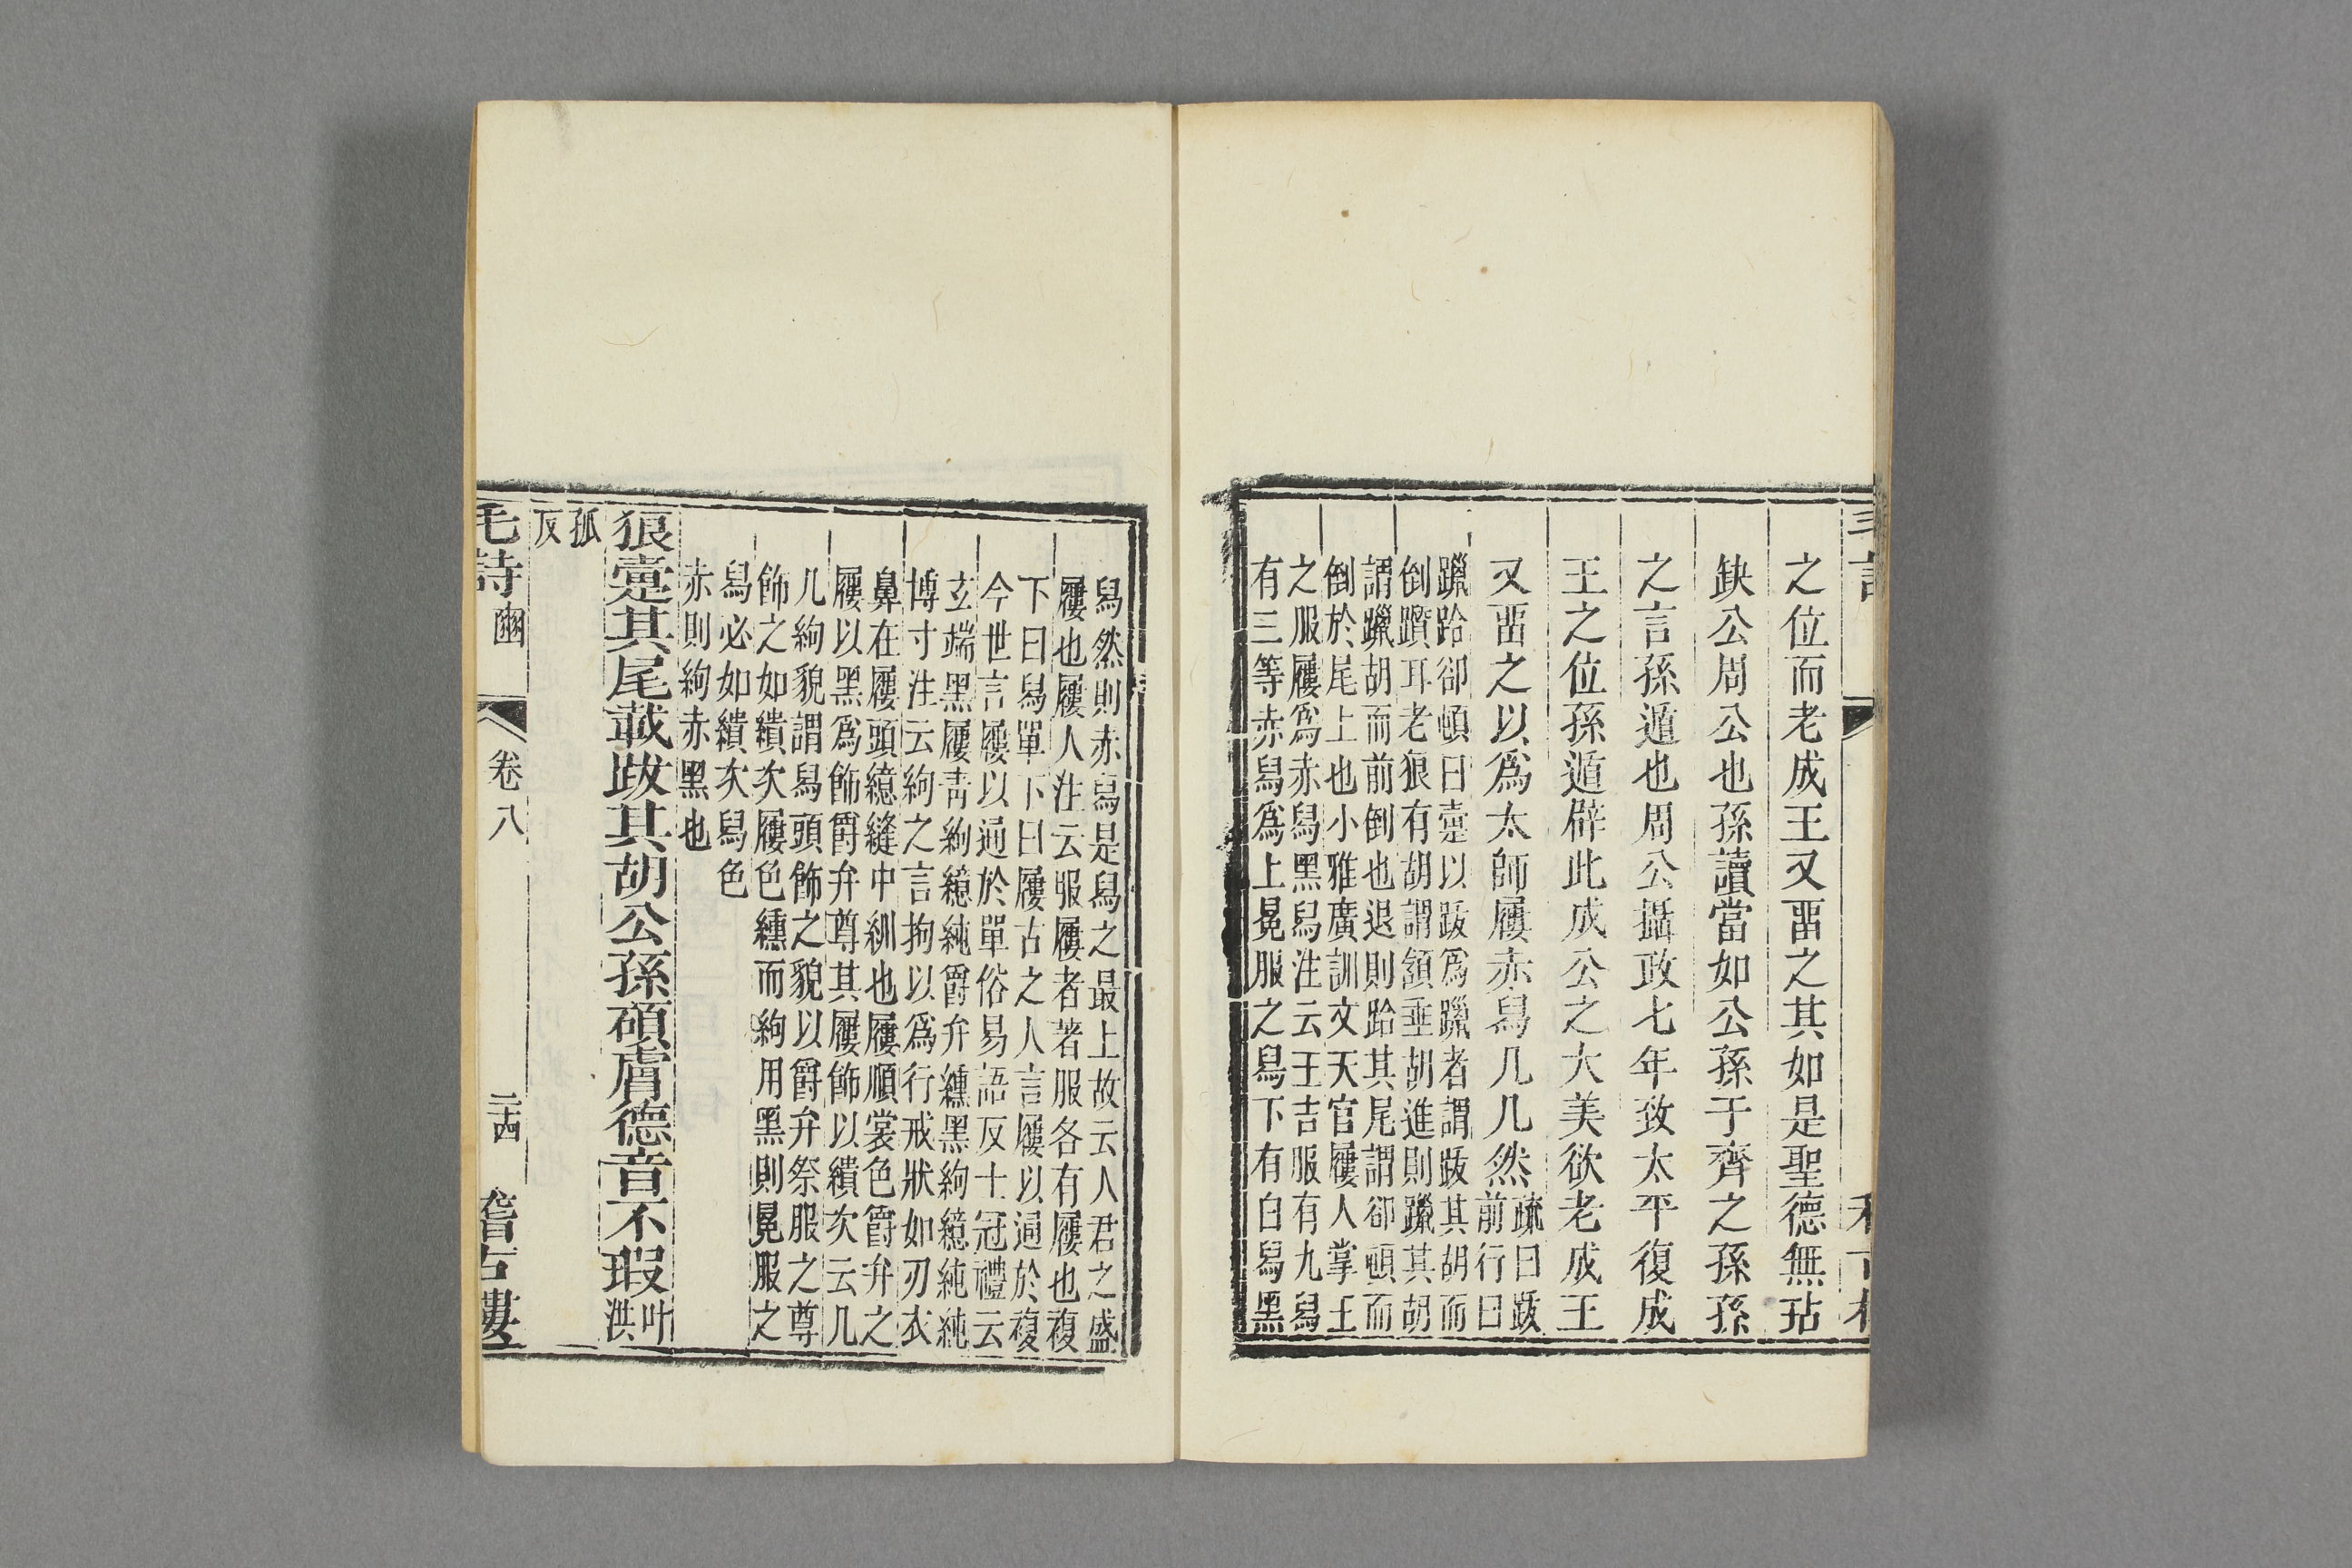 之位而老成王又畱之其如是聖德無玷
缺公周公也孫讀當如公孫于齊之孫孫
之言孫遁也周公攝政七年致太平復成
王之位孫遁辟此成公之大美欲老成王
又畱之以爲太師屨赤舄几几然
疏曰跋
前行曰
躐跲卻頓曰疐以跋爲躐者謂跋其胡而
倒躓耳老狼有胡謂頷垂胡進則躐其胡
謂躐胡而前倒也退則跲其尾謂卻頓而
倒於尾上也小雅廣訓文天官屨人掌王
之服屨爲赤舄黑舄注云王吉服有九舄
有三等赤舄爲上冕服之舄下有白舄黑
舄然則赤舄是舄之最上故云人君之盛
屨也屨人注云服屨者著服各有屨也複
下曰舄單下曰屨古之人言屨以通於複
今世言屨以通於單俗易語反士冠禮云
玄端黑屨靑絇繶純爵弁纁黑絇繶純純
博寸注云絇之言拘以爲行戒狀如刃衣
鼻在屨頭繶縫中紃也屨順裳色爵弁之
屨以黑爲飾爵弁尊其屨飾以繢次云几
几絇貌謂舄頭飾之貌以爵弁祭服之尊
飾之如繢次屨色纁而絇用黑則冕服之
舄必如繢次舄色
赤則絇赤黑也
狼疐其尾載跋其胡公孫碩膚德音不瑕
叶
洪
孤
反
毛詩 豳 卷八 二十四 稽古樓